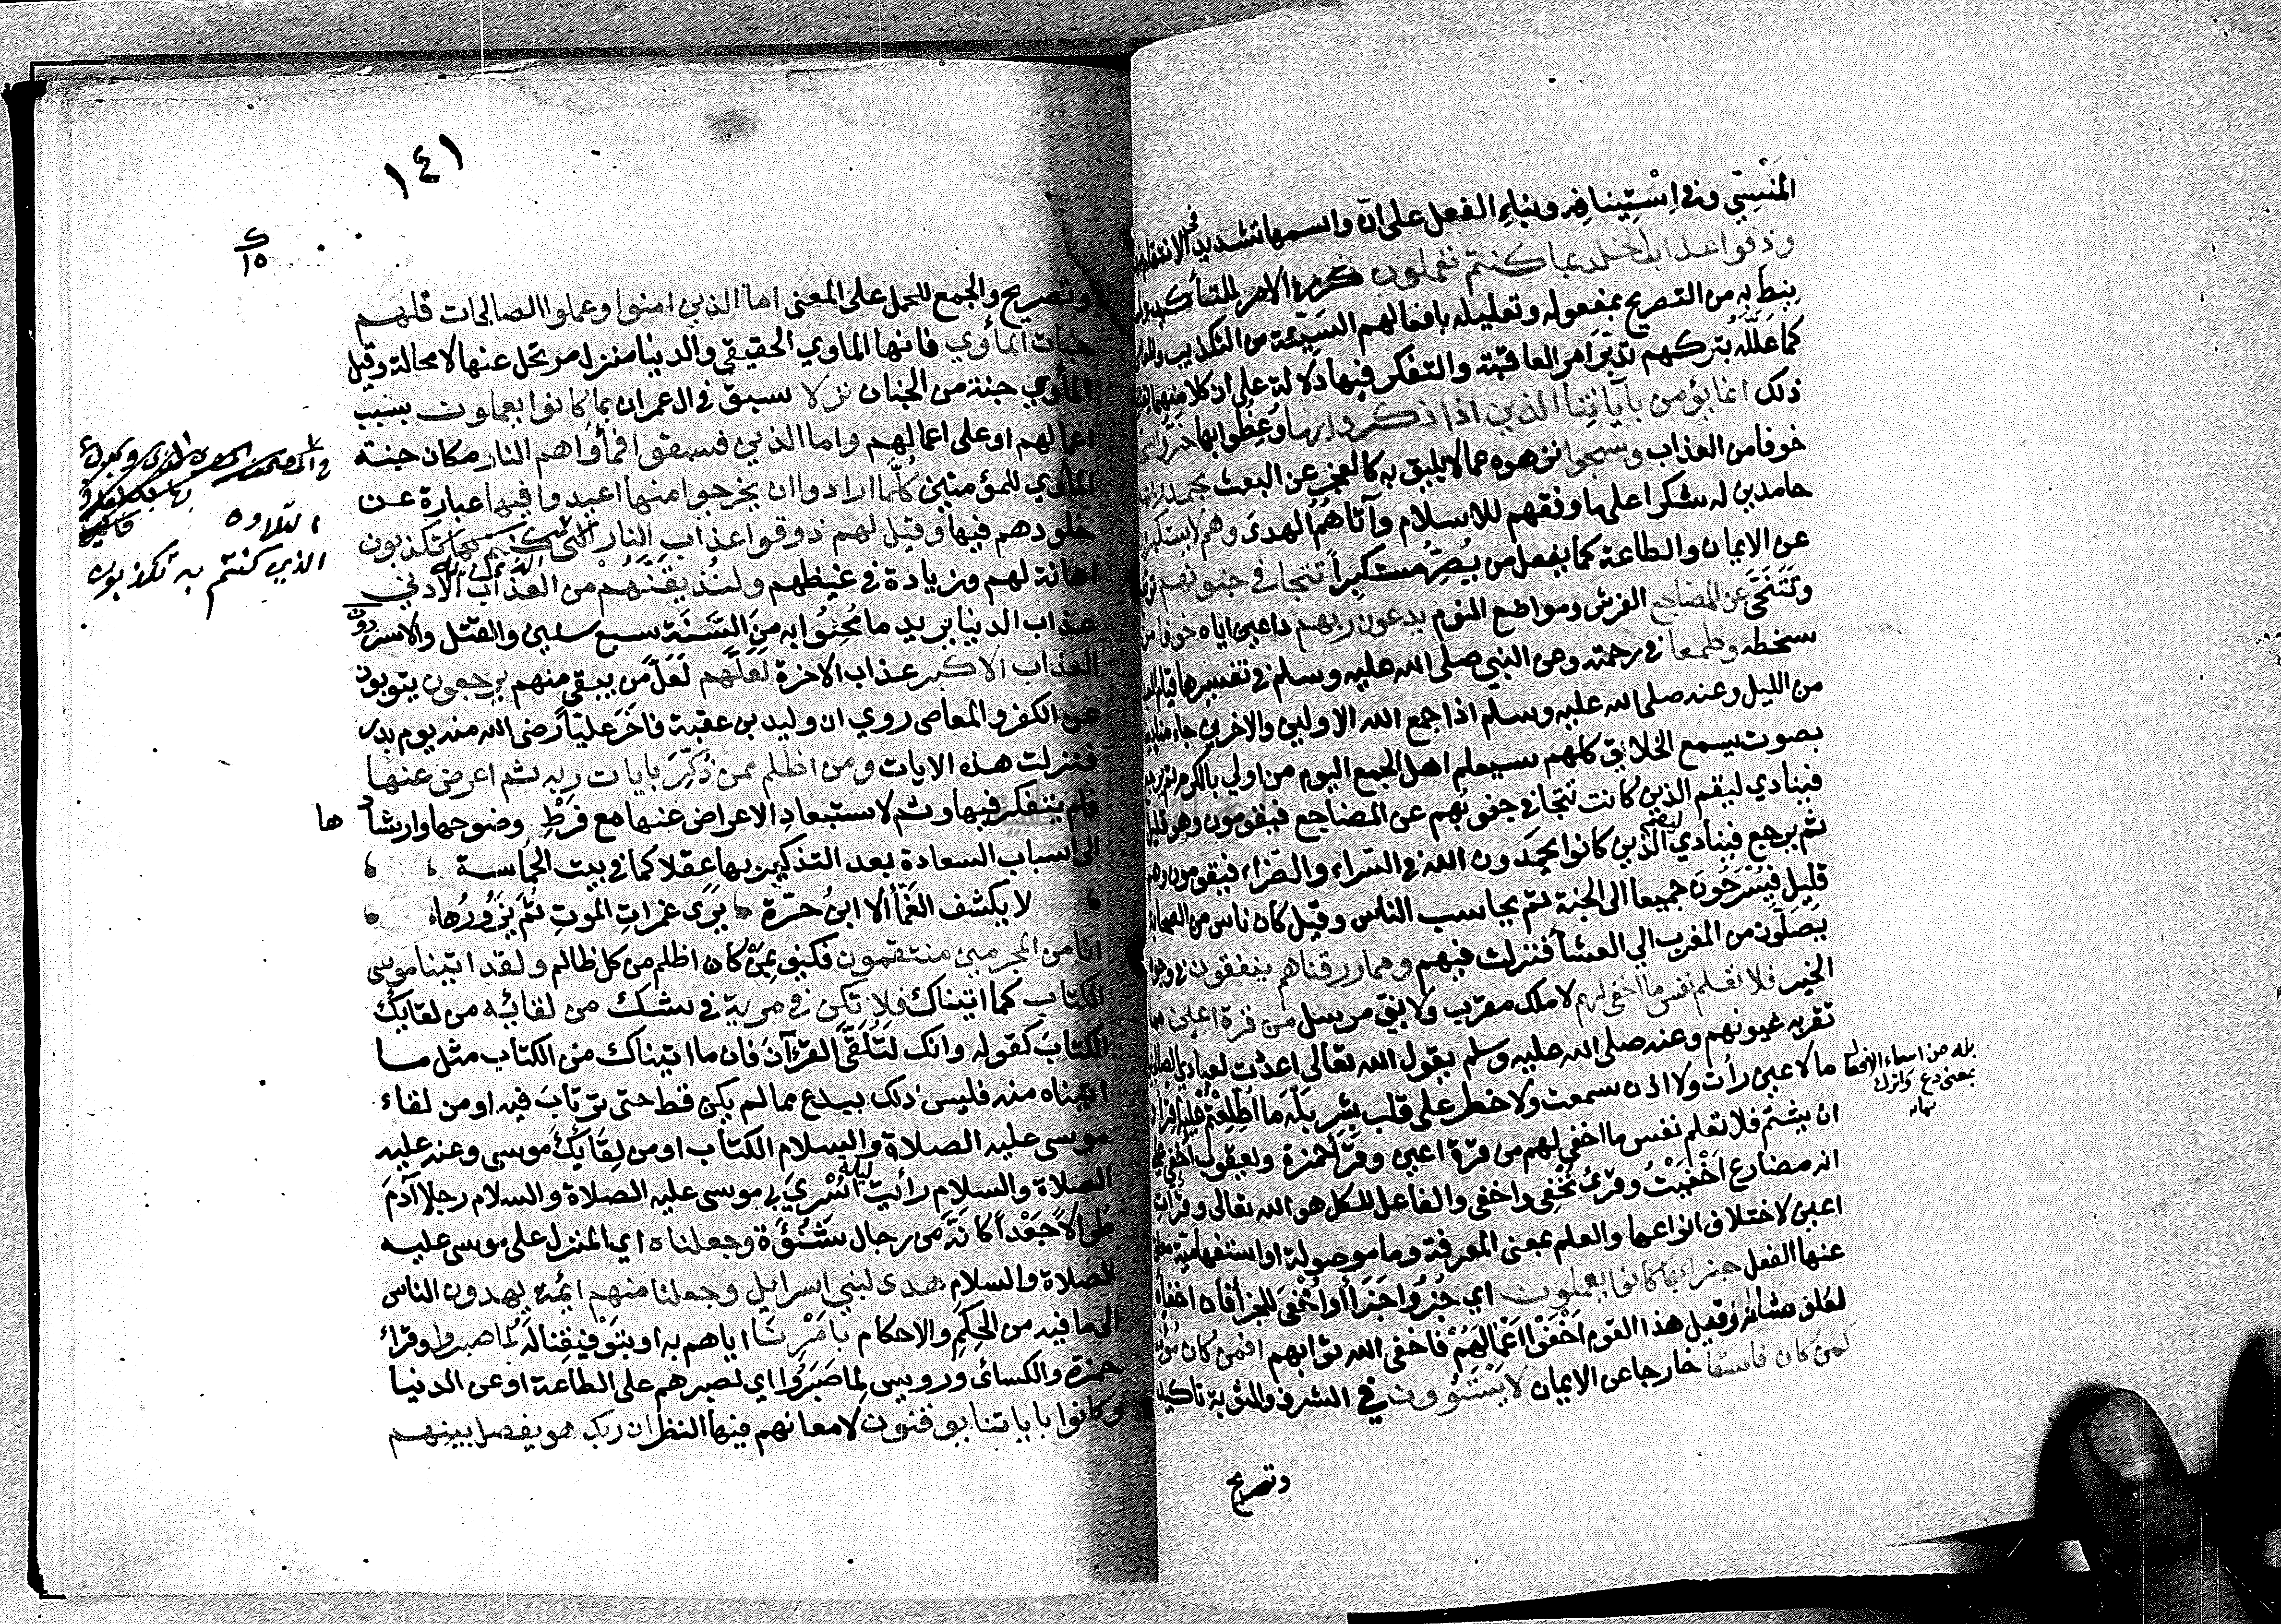 المنسِيّ وفي اِسْتِينافِه وبناءِ الفعل على انّ واسمها تشديد في الانتقام
وذوقوا عذاب الخلد بما كنتم تعملون كرر الامر للتأكيد
نيط به من التصريح بمفعوله وتعليله بافعالهم السَيِّئة من التكذيب
كما عللّه بتركهم تدبّر امر العاقبة والتفكر فيها دلالة على ان كلا منهما
ذلك انما يؤمن بآياتنا الذين اذا ذكروا بها وُعِظوا بها خرّوا
خوفا من العذاب وسبحوا نزهوه عما لا يليق به كالعجز عن البعث بحمد ربهم
حامدين له شكرا على ما وفقهم للاسلام وآتاهُمُ الهدى وهم لا يستكبرون
عن الايمان والطاعة كما يفعل من يُصِرُّ مستكبراً تتجافى جنوبهم
وتَتَنَحّى عن المضاجع الفرش ومواضع النوم يدعون ربهم داعين اياه خوفا من
سخطه وطمعا في رحمته وعن النبي صلى الله عليه وسلم في تفسيرها قيام العبد
من الليل وعنه صلى الله عليه وسلم اذا جمع الله الاولين والاخرين جاء مناد
بصوت يسمع الخلائق كلهم سيعلم اهل الجمع اليوم من اولى بالكرم ثم يرجع
فينادي ليقم الذين كانت تتجافى جنوبهم عن المضاجع فيقومون وهم قليل
ثم يرجع فينادي ليقم الذين كانوا يحمدون الله في السراء والضراء فيقومون وهم
قليل فيُسْرَحُونَ جميعا الى الجنة ثم يحاسب الناس وقيل كان ناس من الصحابة
يصَلّون من المغرب الي العشأ فنزلت فيهم ومما رزقناهم ينفقون في وجوه
الخير فلا تعلم نفس ما اخفي لهم لا ملك مقرب ولا نبيّ مرسل من قرة اعين مما
تقر به عيونهم وعنه صلى الله عليه وسلم يقول الله تعالى اعددت لعبادي الصالحين
ما لا عين رأت ولا اذن سمعت ولا خطر على قلب بشرٍ بَلْهَ ما أطلعتهم عليه اقرأوا
بله من اسماء الافعال
بمعنى دع واترك
ان شئتم فلا تعلم نفس ما اخفي لهم من قرة اعين وقرأ حمزة ويعقوب أُخفي على
انه مضارع أَخْفَيْتُ وقرئ نُخْفِي واخفى والفاعل للكل هو الله تعالى وقرات
اعين لاختلاف انواعها والعلم بمعنى المعرفة وما موصولة او استفهامية معلق
عنها الفعل جزاء بما كانوا يعملون اي جُزُوا جَزَاءً أو أُخْفِيَ للجزأ فان اخفاه
لعلو شأنه وقيل هذا القوم أَخْفَوْا أعْمَالَهُمْ فاخفى الله ثوابهم افمن كان مؤمنا
كمن كان فاسقا خارجا عن الايمان لا يَسْتَوُون في الشرف والمثوبة تاكيد
وتصريح
١٤١
ك
١٥
وتصريح والجمع للحمل على المعنى اما الذين امنوا وعملوا الصالحات فلهم
جنات المأوي فانها الماوي الحقيقي والدينا منزل مرتحل عنها لا محالة وقيل
المأوي جنة من الجنان نزلا سبق في ال عمران بما كانوا يعملون بسبب
اعمالهم او على اعمالهم واما الذين فسقوا فمأواهم النار مكان جنة
المأوي للمؤمنين كُلّما ارادوا ان يخرجوا منها اعيدوا فيها عبارة عن
خلودهم فيها وقيل لهم ذوقوا عذاب النار التي كنتم بها تكذبون
التلاوة
الذي كنتم به تكذبون
اهانة لهم وزيادة في غيظهم ولنُذِيقَنَّهُمْ من العذاب الأدني
عذاب الدنيا يريد ما مُحِنُوا به مِنَ السَّنَة سبع سنين والقتل والاسر دون
العذاب الاكبر عذاب الاخرة لعَلّهم لَعَلّ من يبقى منهم يرجعون يتوبون
عن الكفر والمعاصى روي ان وليد بن عقبة فاخَرَ عليّاً رضى الله عنه يوم بدر
فنزلت هذه الايات ومن اظلم ممن ذُكِّرَ بايات ربه ثم اعرض عنها
فلم يتفكر فيها وثم لاستبعادِ الاعراض عنها مع فرَطِ وضوحها وارشاد ها
الى اسباب السعادة بعد التذكير بها عقلا كما في بيت الحماسة
لا يكشف الغَمّأ الا ابنُ حرّة يَرَى غمراتِ الموتِ ثُمَّ يَزُورُها
انا من المجرمين منتقمون فكيف بمن كان اظلم من كل ظالم ولقد اتينا موسى
الكتاب كما اتيناك فلا تكن في مرية في شك من لقائه من لقائِك
الكتابَ كقوله وانك لَتُلَقَّى القرآنَ فان ما اتيناك من الكتاب مثل ما
اتيناه منه فليس ذلك ببدع مما لم يكن قط حتى ترتابَ فيه او من لقاء
موسى عليه الصلاة والسلام الكتاب او من لِقَائِكَ موسى وعنه عليه
الصلاة والسلام رأيت ليلة أُسْرِيَ بي موسى عليه الصلاة والسلام رجلا آدَمَ
طُوالاً جَعْداً كانّهُ من رجال شَنُؤَة وجعلناه اي المنزل على موسى عليه
الصلاة والسلام هدى لبني اسرايل وجعلنا منهم ائمة يهدون الناس
الى ما فيه من الحِكَمِ والاحكام بامْرِنَا اياهم به او بتَوْفيقِنا لَهُ لما صبروا وقرأ
حمزة والكسائى ورويس لِما صَبَرُوا اي لصبرهم على الطاعة او عن الدنيا
وكانوا باياتنا يوقنون لامعانهم فيها النظر ان ربك هو يفصل بينهم